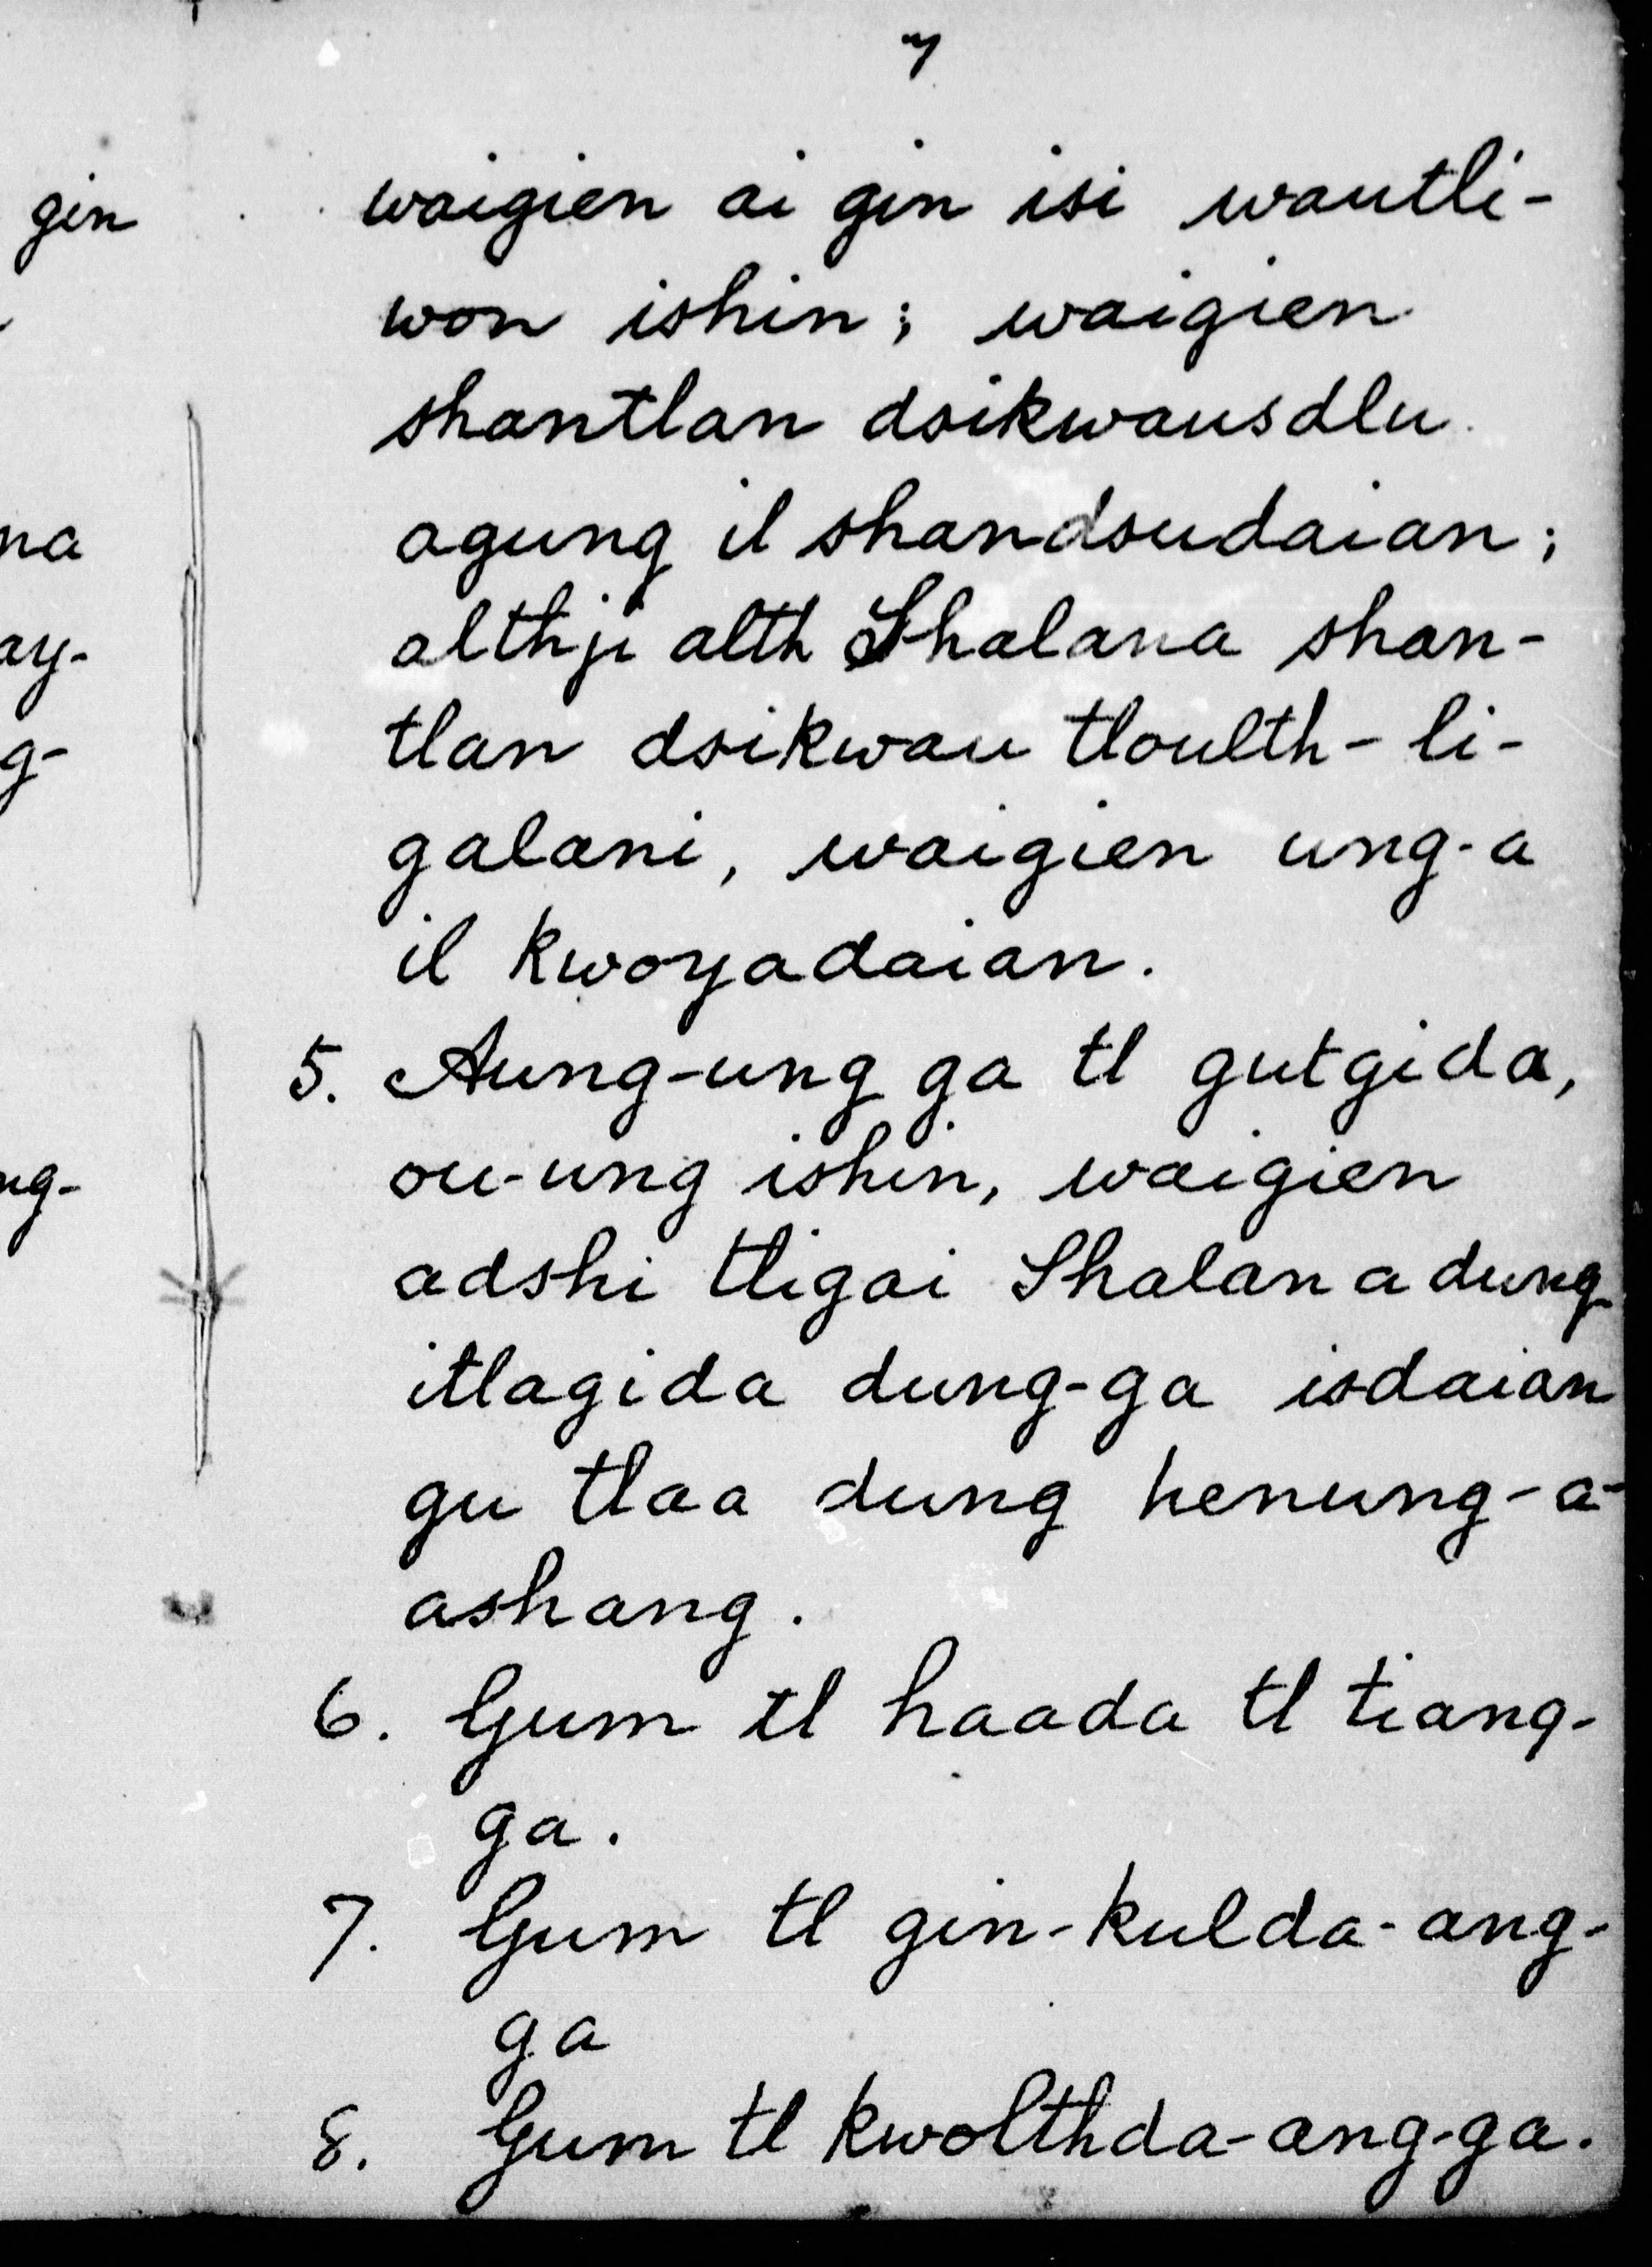 7
gin
waigien ai gin isi wautli-
won ishin; waigien
shantlan dsikwausdlu
agung il shandsudaian;
na
althji alth Shalana shan-
ay-
tlan dsikwau tloulth-li-
g-
galani, waigien ung-a
il kwoyadaian.
5. Aung-ung ga tl gutgida,
ou-ung ishin, waigien
ng-
adshi tligai Shalana dung
itlagida dung-ga isdaian
gu tlaa dung henung-a-
ashang.
6. Gum tl haada tl tiang-
ga.
7. Gum tl gin-kulda-ang-
ga
8. Gum tl kwolthda-ang-ga.